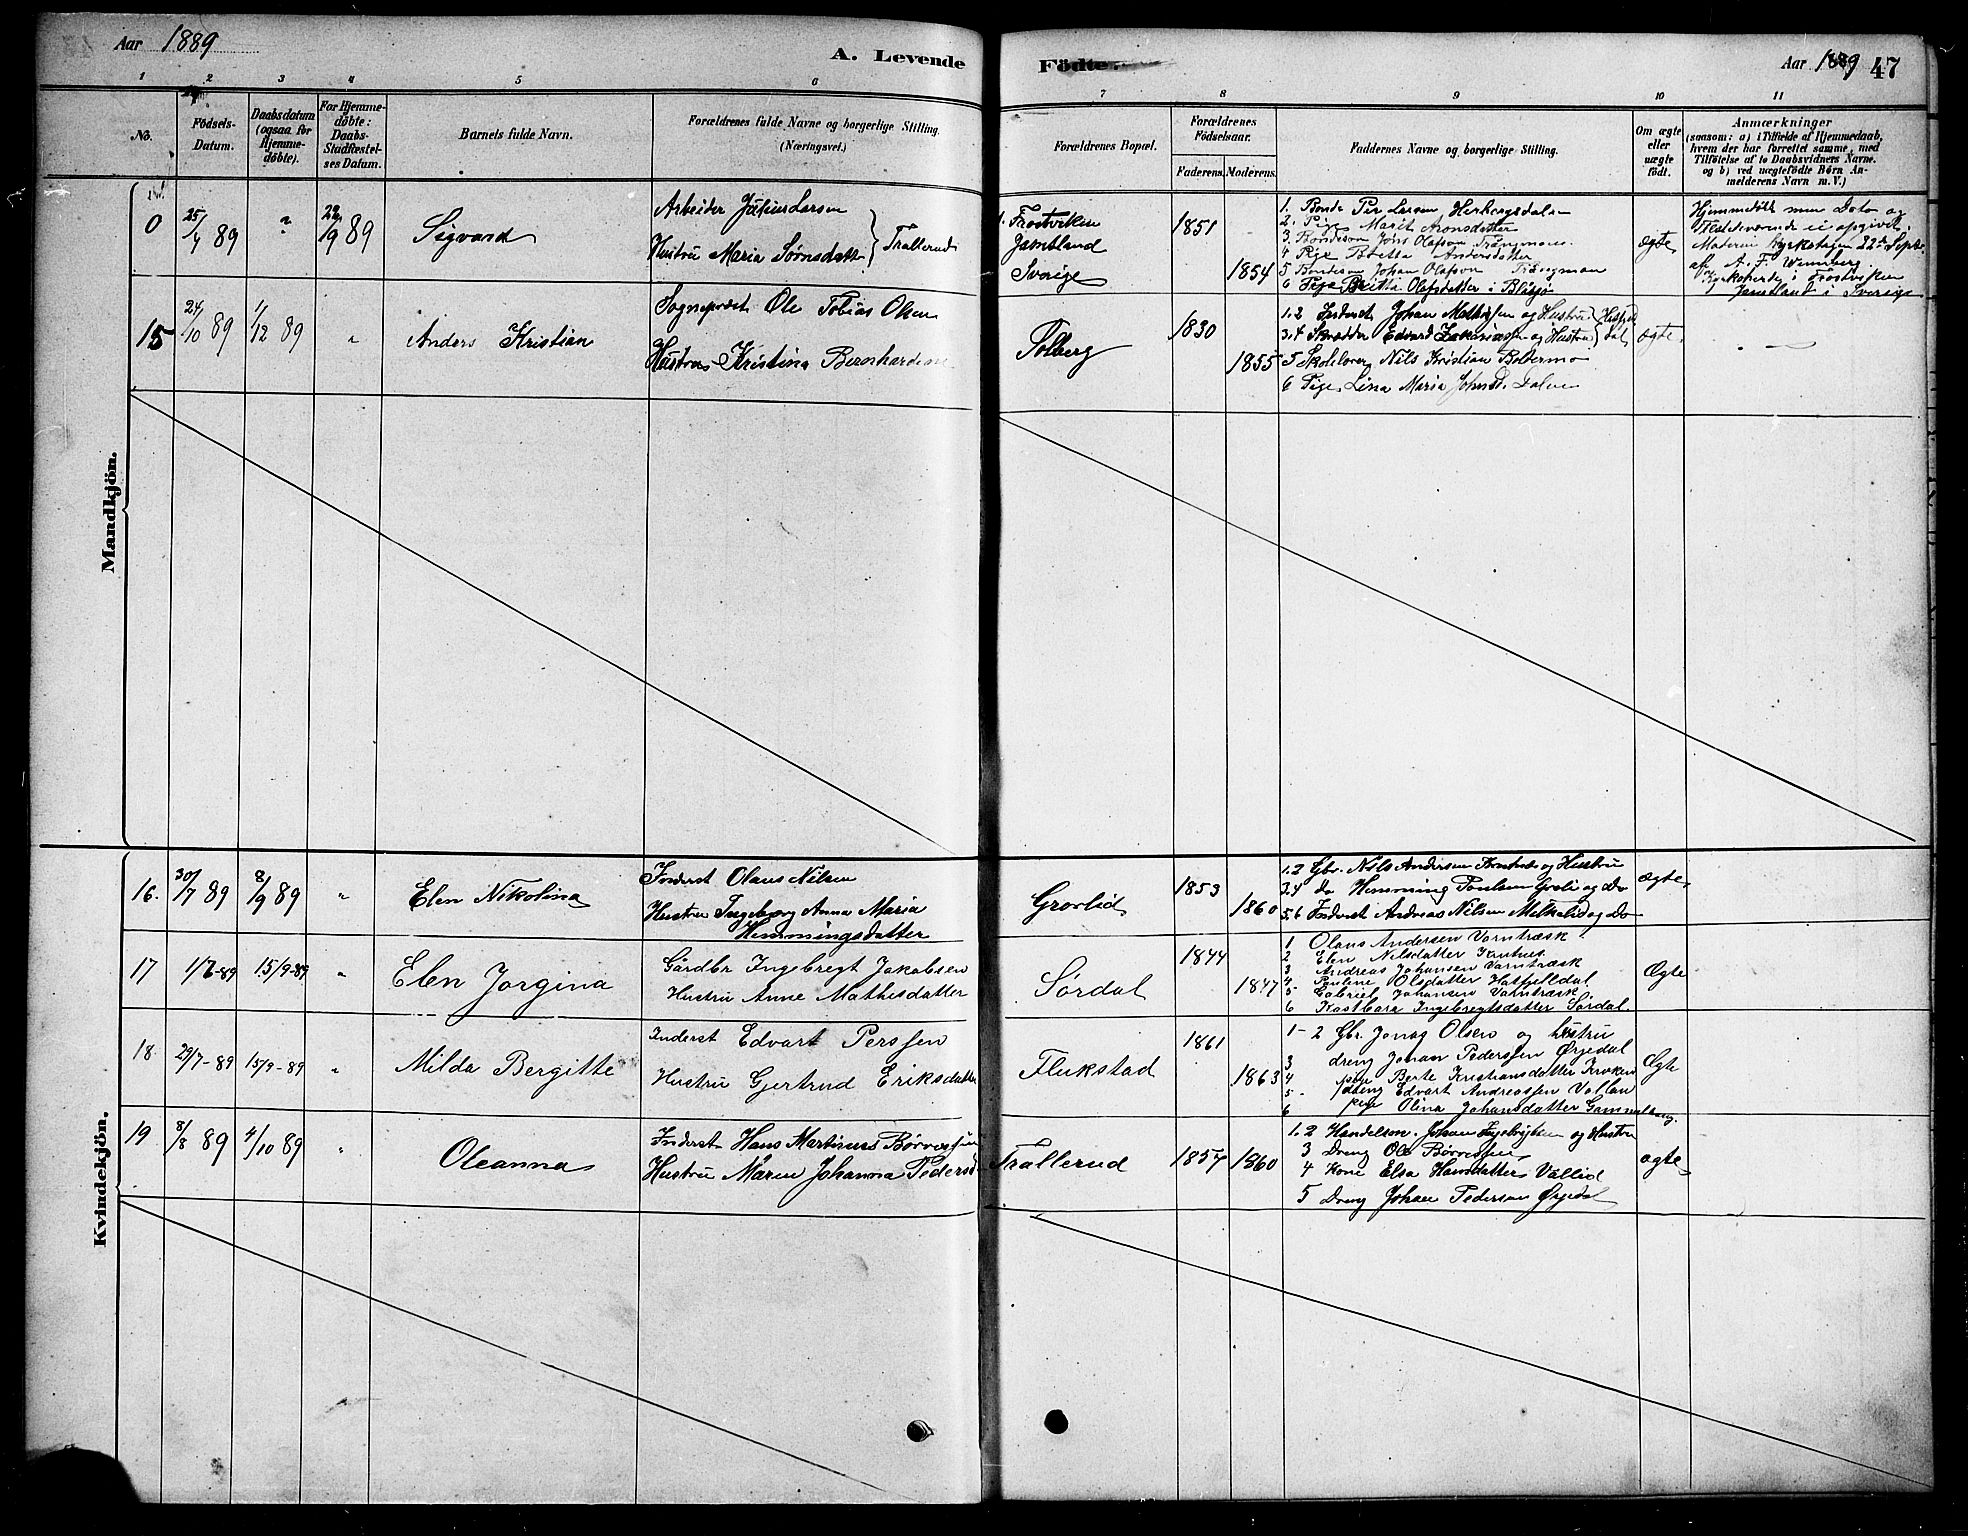 Aar 1889
A. Levende
Födte.
Aar 1889 47
1 2 3 4 5 6 7 8 9 10 11
No.
Födsels-
Datum.
Daabsdatum
(ogsaa for
Hjemme-
döbte).
For Hjemme-
döbte:
Daabs-
Stadfæstel-
ses Datum.
Barnets fulde Navn.
Forældrenes fulde Navne og borgerlige Stilling.
(Næringsvei.)
Forældrenes Bopæl.
Forældrenes
Födselsaar.
Faderens. Moderens.
Faddernes Navne og borgerlige Stilling.
Om ægte
eller
uægte
födt.
Anmærkninger
(saasom: a) i Tilfælde af Hjemmedaab,
hvem der har forrettet samme, med
Tilföielse af to Daabsvidners Navne.
og b) ved uægtefödte Börn An-
melderens Navn m.V.)
Mandkjön.
0 25/7 89 " 22/9 89 Sigvard
Arbeider Julius Larsen
Hustru Maria Sørnsdattr } Trallerud
Frostviken
Jæmtland
Sverige
1851
1854
1. Bonde Per Larsen Herbergsdalen
2. Pige Marit Aronsdatter
3. Bondesøn Jöns Olafson
4 Pige Beretta Andersdatter
5 Bondesøn Johan Olafson
6 Pige Britta Olafsdatter i Blåsjö
ægte
Hjemmedöbt men Dato og
Vedkommende ei opgivet.
Moderen Kyrktagen 22de Septbr
af A. F. Wennberg
Kyrkoherde i Frostviken
Jemtland i Sverige
15 24/10 89 1/12 89 " Anders Kristian
Sogneprest Ole Tobias Olsen
Hustru Kristina Bernhardine
Tolberg
1830
1855
1.2 Inderst Johan Mathisen og Hustru
3.4 Skrædder Edvard Zakariassen og Hustru
5 Skolelærer Nils Kristian Boltermo
6 Pige Lina Maria Johnsd. Dalen
ægte
Kvindekjön.
16. 30/7 89 8/9 89 " Elen Nikolina
Inderst Olaus Nilsen
Hustru Ingeborg Anna Maria
Hemmingsdatter
Grovlid
1853
1860
1.2 Gbr. Nils Andersen og Hustru
3.4 do Hemming Poulsen Groli og Do
5.6 Inderst Andreas Nilsen og Do
ægte
17 1/7-89 15/9-89 " Elen Jorgina
Gårdbr Ingebregt Jakobsen
Hustru Anne Mathisdatter
Sørdal
1844
1847
1 Olaus Andersen Varntræsk
2 Elen Nilsdatter
3 Andreas Johansen Varntræsk
4 Pauline Olsdatter Hatfjelldal
5 Gabriel Johansen Varntræsk
6 Kastbara Ingebregtsdatter Sørdal.
Ægte
18. 29/7-89 15/9-89 " Milda Bergitte
Inderst Edvart Perssen
Hustru Gjertrud Eriksdatter
Flukstad
1861
1863
1-2 Gbr. Jonas Olsen og hustru
3 dreng Johan Pederssen Ørjedal
4 pige Berte Kristiansdatter Kroken
5 dreng Edvart Andreassen Vallan
6 pige Olina Johansdatter
Ægte
19 8/8 89 4/10 89 " Oleanna
Inderst Hans Martinus Børresen
Hustru Maren Johanna Pedersd
Trallerud
1857 1860
1.2 Handelsm. Johan Ingebrigtsen og Hustru
3 Dreng Ole Børressen
4 Kone Elsa Hansdatter Vallid
5 Dreng Johan Pedersen Ørjedal
ægte